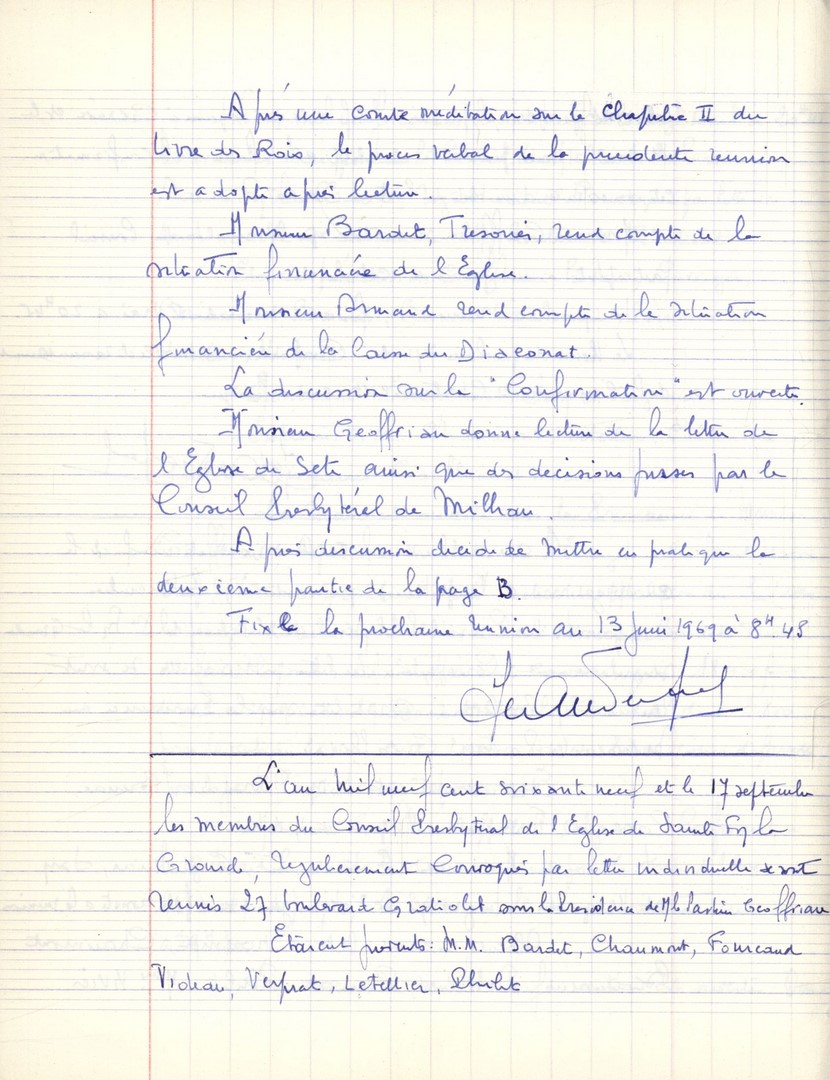 Après une courte méditation sur le chapitre II du
livre des Rois, le proces verbal de la precedente reunion
est adopté après lecture.
Monsieur Bardet, Tresorier, rend compte de la
situation financière de l'Eglise.
Monsieur Armand rend compte de la situation
financière de la Caisse du Diaconat.
La discussion sur la "Confirmation" est ouverte.
Monsieur Geoffriau donne lecture de la lettre de
l'Eglise de Sete ainsi que des decisions prises par le
Conseil Presbytéral de Milhau.
Après discussion decide de mettre en pratique la
deuxieme partie de la page B.
Fixe la prochaine reunion au 13 Juin 1969 à 8H45
L'an mil neuf cent soixante neuf et le 17 septembre
les membres du Conseil Presbyteral de l'Eglise de Sainte Foy la
Grande, regulierement convoqués par lettre individuelle se sont
reunis 27 boulevard Gratiolet sous la Presidence de Mr le Pasteur Geoffriau
Etaient presents: M.M. Bardet, Chaumont, Fourcaud
Videau, Veyrat, Letellier,